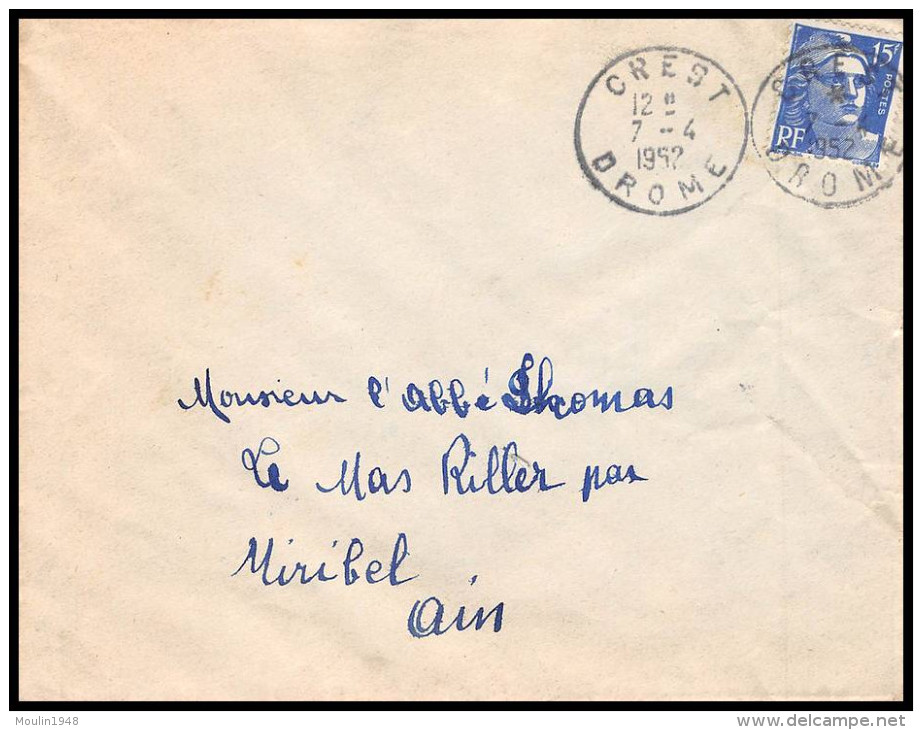 CREST
12 H
7 - 4
1952
DROME
15F
POSTES
RF
CREST
7 - 4
1952
DROME
Monsieur l'abbé Thomas
Le Mas Rillier par
Miribel
Ain
Moulin1948
www.delcampe.net